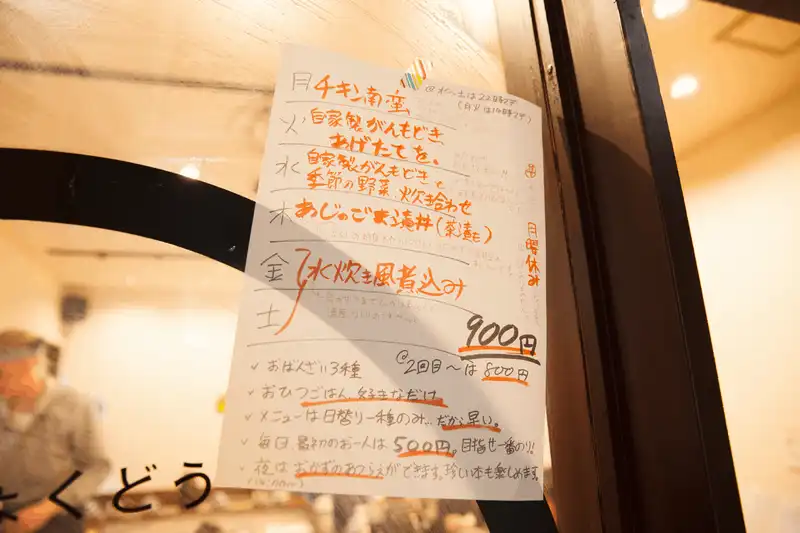 月 チキン南蛮
火 自家製がんもどき、
あげたてを。
水 自家製がんもどきと
季節の野菜、炊き合わせ
木 あじのごまみ丼(茶漬)
金 水炊き風煮込み
土
水、土は22時マデ
月曜休み
900円
@2回目〜は800円
✓ おばんざい3種
✓ おひつごはん、好きなだけ
✓ メニューは日替り一種のみ…だから早い。
✓ 毎日、最初のお一人は500円。目指せ一番のり!!
✓ 夜はおかずのあつらえができます。珍しい本も楽しめます。
くどう